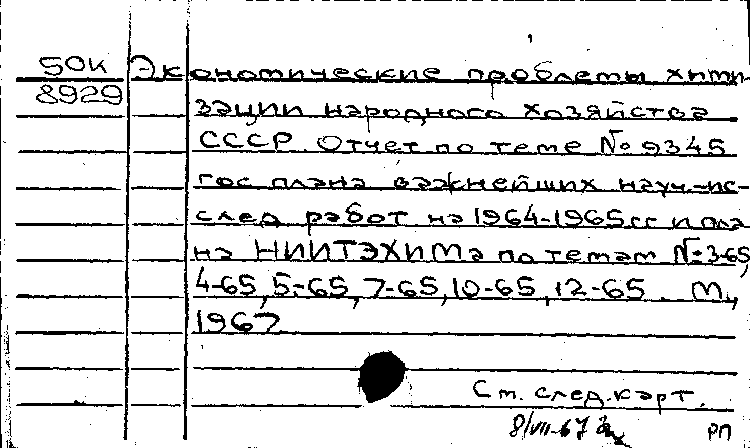 50К Экономические проблемы хими-
8929 зации народного хозяйства
СССР. Отчет по теме №9345
гос плана важнейших науч-ис-
след работ на 1964-1965гг и пла
на НИИТЭХИМа по темам №3-65,
4-65, 5-65, 7-65, 10-65, 12-65. М.,
1967
См. след. карт.
8/VII-67 РП